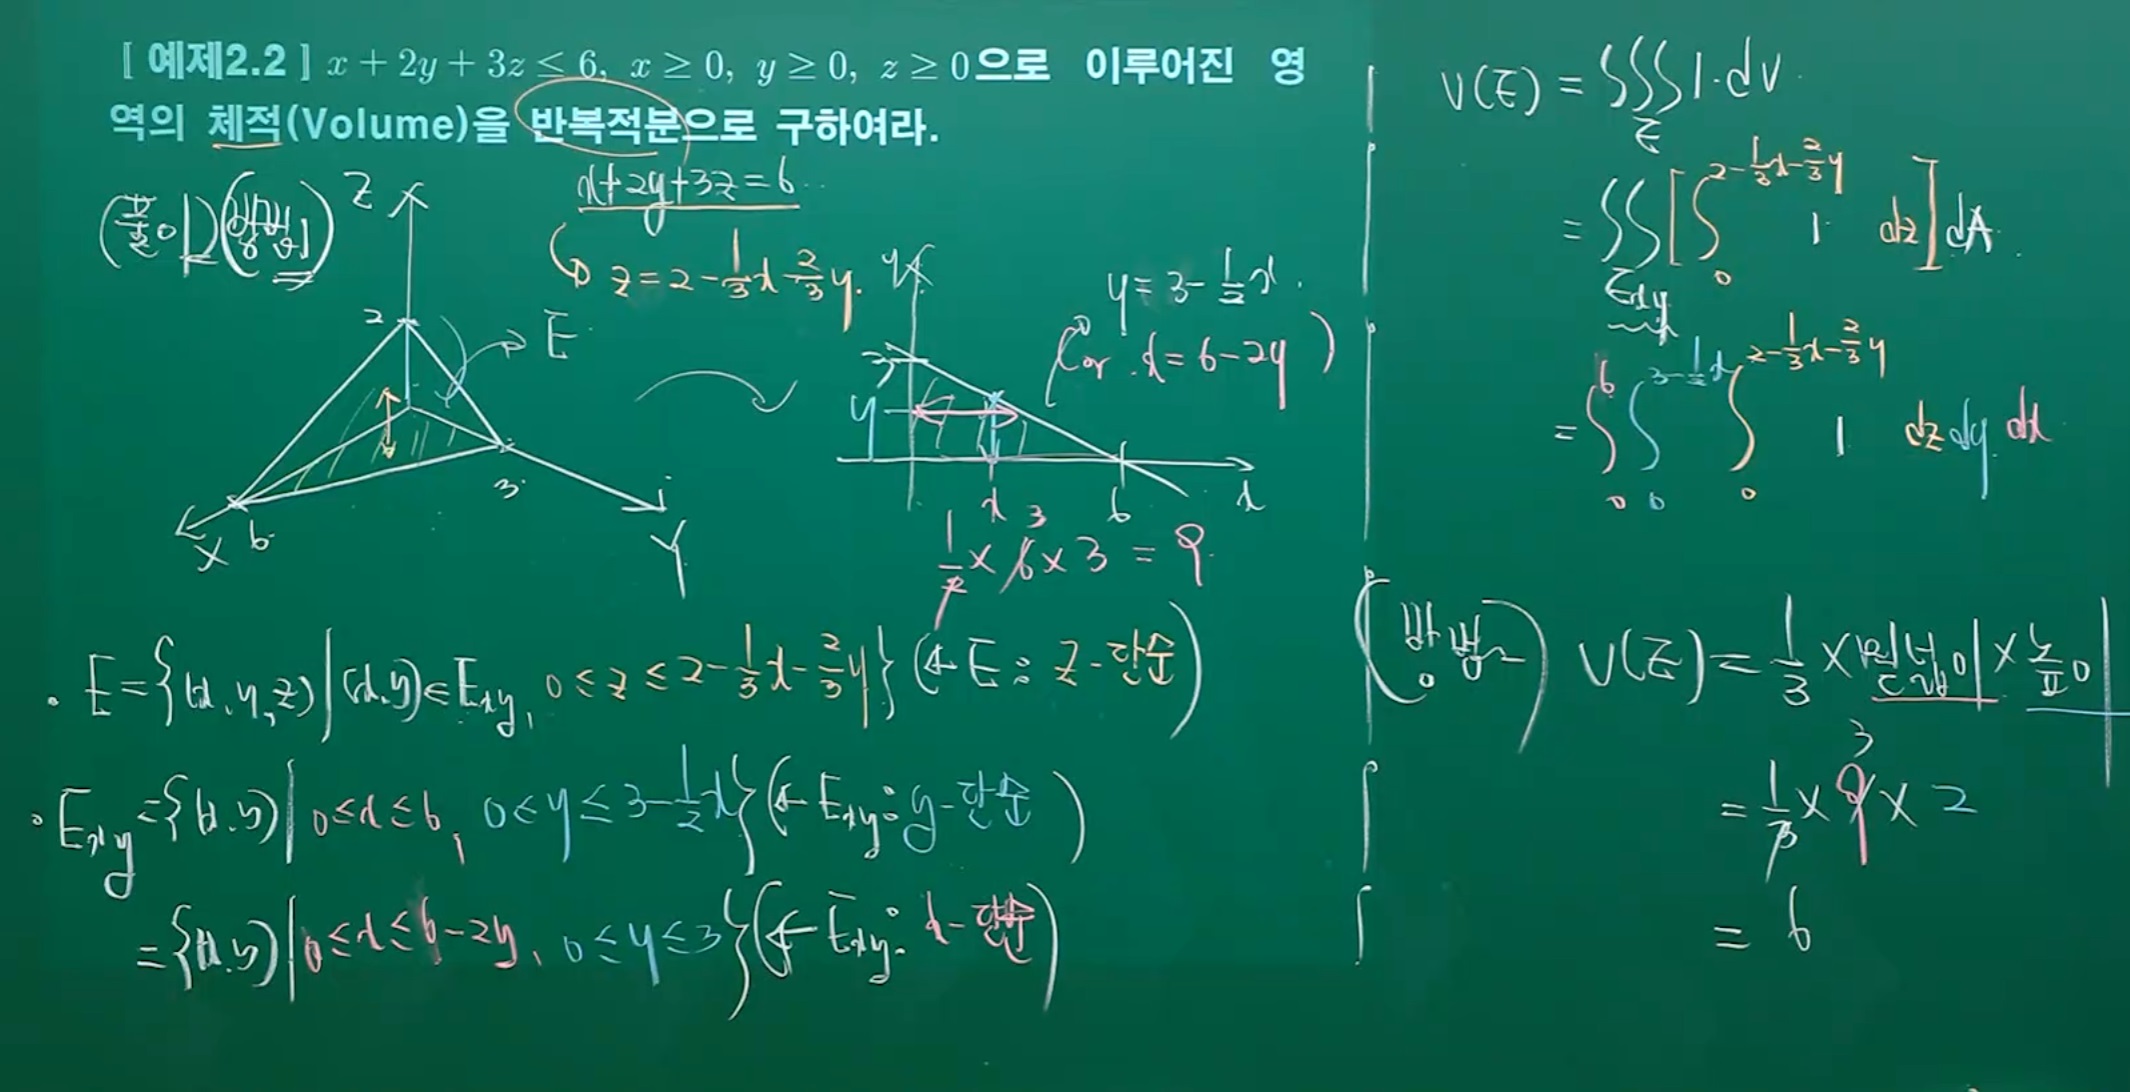 [ 예제2.2 ] x + 2y + 3z ≤ 6, x ≥ 0, y ≥ 0, z ≥ 0으로 이루어진 영
역의 체적(Volume)을 반복적분으로 구하여라.
(풀이) (방법1)
x+2y+3z=6
z=2-1/3x-2/3y.
Z
2
E
3
6
X
Y
y
3
y
x
6
x
y=3-1/2x.
(or x=6-2y)
1/2×6×3=9
3
• E={(x,y,z)|(x,y)∈Exy, 0≤z≤2-1/3x-2/3y} (← E: z-단순)
• Exy={(x,y)|0≤x≤6, 0≤y≤3-1/2x} (← Exy: y-단순)
={(x,y)|0≤x≤6-2y, 0≤y≤3} (← Exy: x-단순)
V(E)=∭_E 1·dV
=∬_Exy [∫_0^{2-1/3x-2/3y} 1 dz] dA
=∫_0^6 ∫_0^{3-1/2x} ∫_0^{2-1/3x-2/3y} 1 dz dy dx
(방법2) V(E)=1/3×밑넓이×높이
=1/3×9×2
3
=6